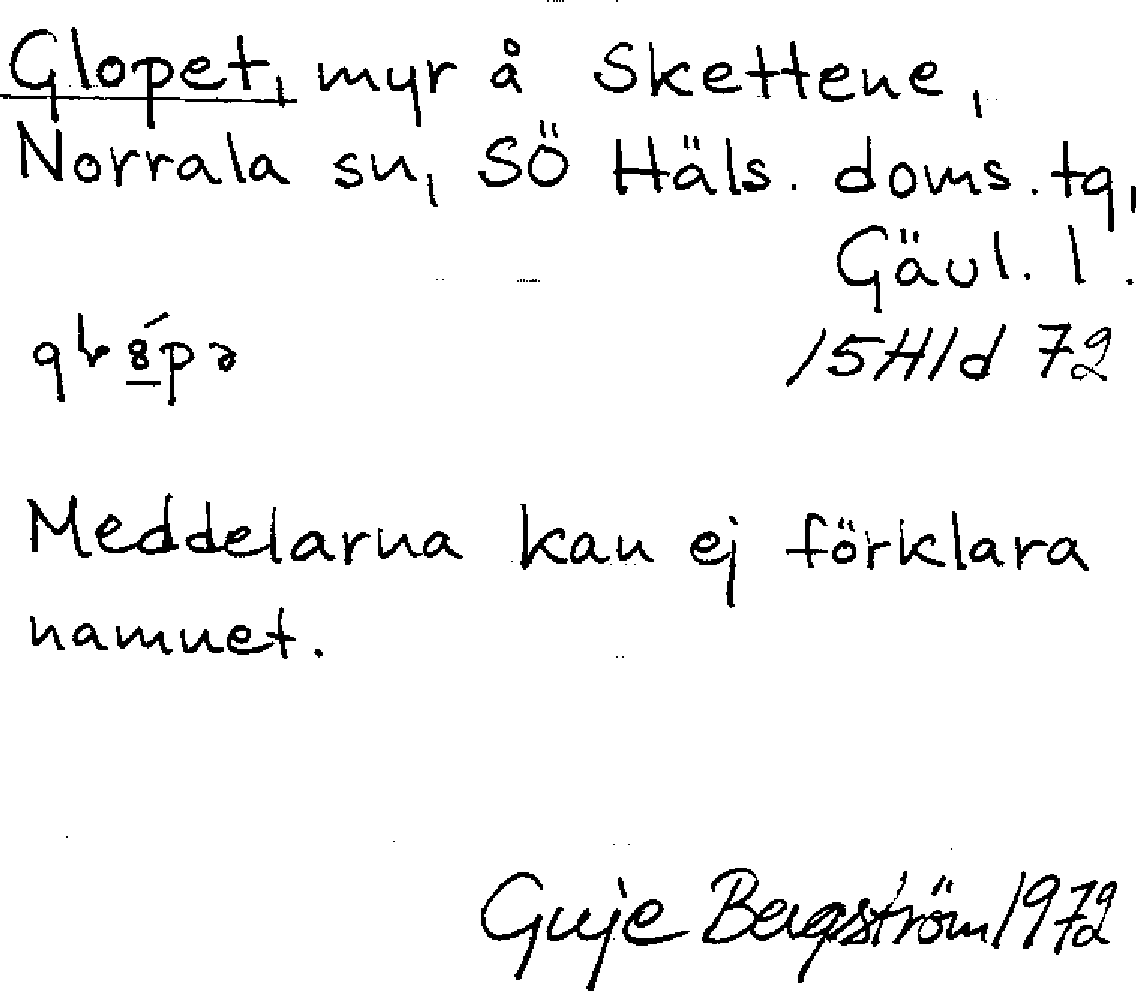 Glopet, myr å Skettene,
Norrala sn, SÖ Häls. doms. tg,
Gävl. l.
15H1d 72
Meddelarna kan ej förklara
namnet.
Guje Bergström 1972